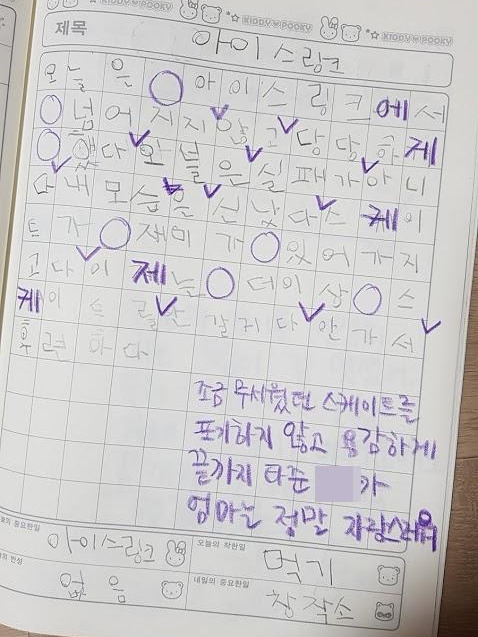 KIDDY♥POOKY KIDDY♥POOKY KIDDY♥POOKY
제목
아이스링크
오늘은 ○ 아이스링크에서
○ 넘어지지 않고 당당하게
○ 했다 오늘은 실패가 아니
다 내 모습은 신났다 스케이
트가 ○ 재미가 ○ 있어가지
고 다 이제는 ○ 더이상 ○ 스
케이트를 안 갈거다 안가서
후련하다
조금 무서웠던 스케이트를
포기하지 않고 용감하게
끝까지 타준 가
엄마는 정말 자랑스러워
오늘의 중요한일
아이스링크
오늘의 착한일
먹기
의 반성
없음
내일의 중요한일
창작소